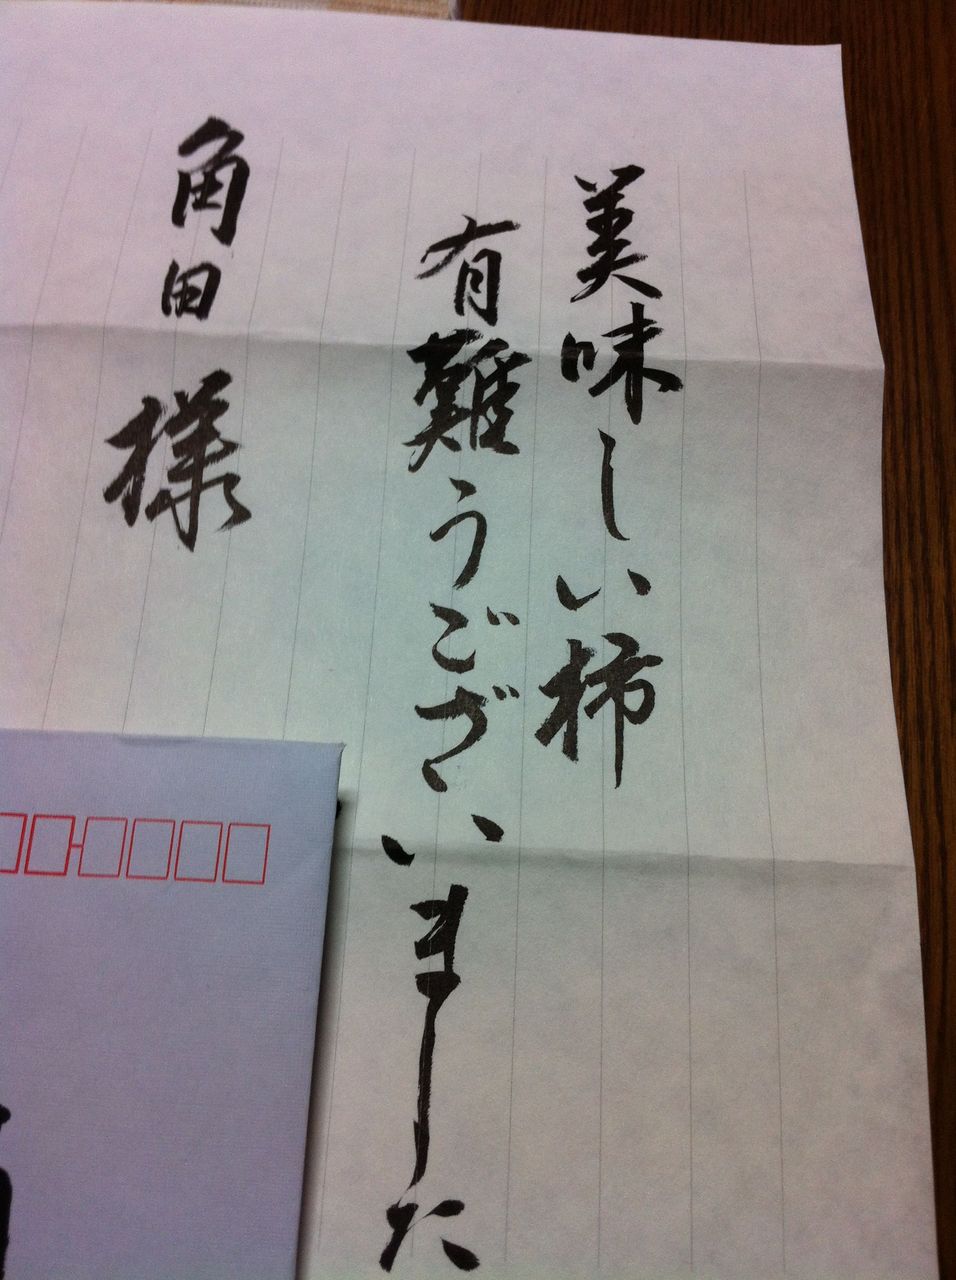 美味しい柿
有難うございました
角田様